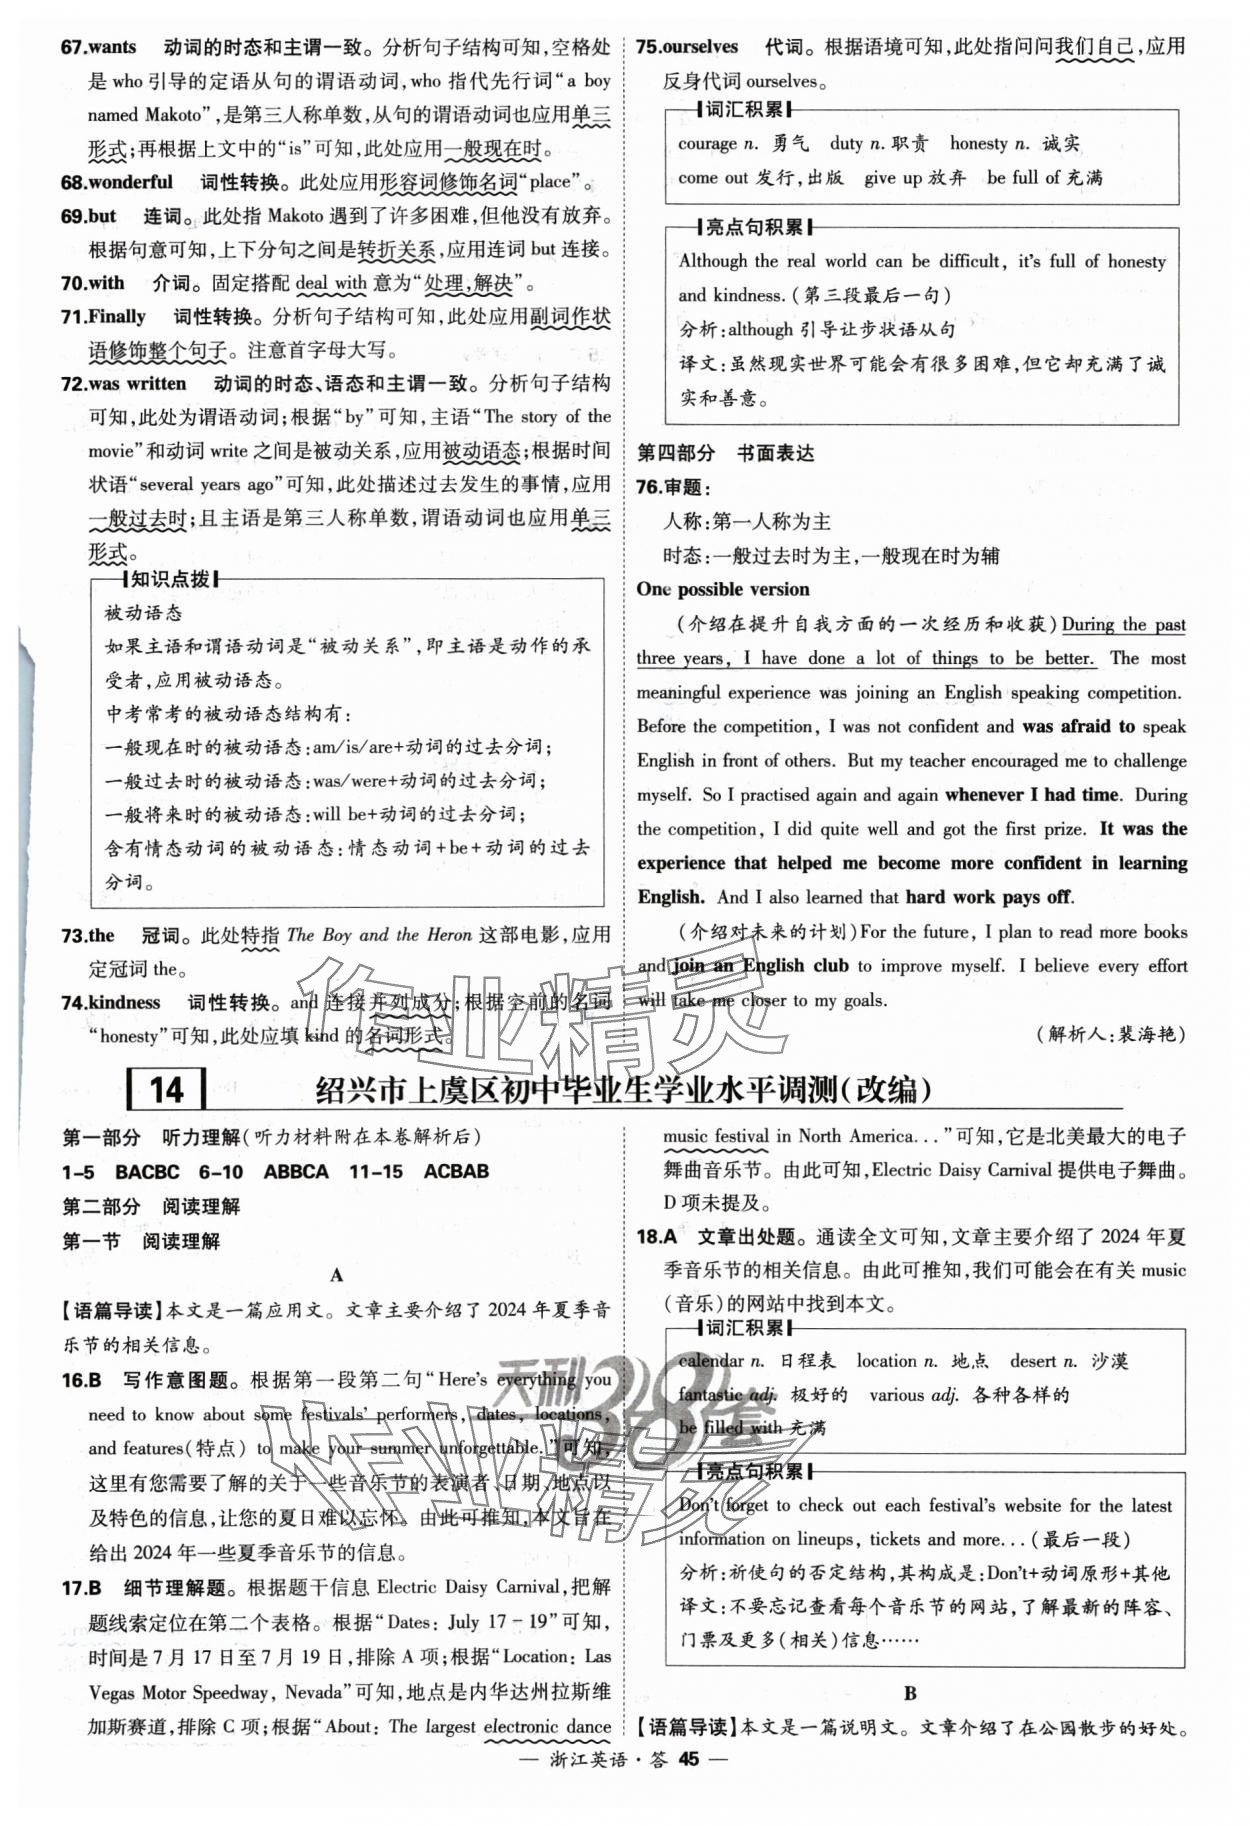 67.wants 动词的时态和主谓一致。分析句子结构可知,空格处
是 who 引导的定语从句的谓语动词,who 指代先行词“a boy
named Makoto”,是第三人称单数,从句的谓语动词也应用单三
形式;再根据上文中的“is”可知,此处应用一般现在时。
68.wonderful 词性转换。此处应用形容词修饰名词“place”。
69.but 连词。此处指 Makoto 遇到了许多困难,但他没有放弃。
根据句意可知,上下分句之间是转折关系,应用连词 but 连接。
70.with 介词。固定搭配 deal with 意为“处理,解决”。
71.Finally 词性转换。分析句子结构可知,此处应用副词作状
语修饰整个句子。注意首字母大写。
72.was written 动词的时态、语态和主谓一致。分析句子结构
可知,此处为谓语动词;根据“by”可知,主语“The story of the
movie”和动词 write 之间是被动关系,应用被动语态;根据时间
状语“several years ago”可知,此处描述过去发生的事情,应用
一般过去时;且主语是第三人称单数,谓语动词也应用单三
形式。
知识点拨
被动语态
如果主语和谓语动词是“被动关系”,即主语是动作的承
受者,应用被动语态。
中考常考的被动语态结构有:
一般现在时的被动语态:am/is/are+动词的过去分词;
一般过去时的被动语态:was/were+动词的过去分词;
一般将来时的被动语态:will be+动词的过去分词;
含有情态动词的被动语态:情态动词+be+动词的过去
分词。
73.the 冠词。此处特指 The Boy and the Heron 这部电影,应用
定冠词 the。
74.kindness 词性转换。and 连接并列成分;根据空前的名词
“honesty”可知,此处应填 kind 的名词形式。
75.ourselves 代词。根据语境可知,此处指问问我们自己,应用
反身代词 ourselves。
词汇积累
courage n. 勇气 duty n. 职责 honesty n. 诚实
come out 发行,出版 give up 放弃 be full of 充满
亮点句积累
Although the real world can be difficult, it's full of honesty
and kindness. (第三段最后一句)
分析:although 引导让步状语从句
译文:虽然现实世界可能会有很多困难,但它却充满了诚
实和善意。
第四部分 书面表达
76.审题:
人称:第一人称为主
时态:一般过去时为主,一般现在时为辅
One possible version
(介绍在提升自我方面的一次经历和收获)During the past
three years, I have done a lot of things to be better. The most
meaningful experience was joining an English speaking competition.
Before the competition, I was not confident and was afraid to speak
English in front of others. But my teacher encouraged me to challenge
myself. So I practised again and again whenever I had time. During
the competition, I did quite well and got the first prize. It was the
experience that helped me become more confident in learning
English. And I also learned that hard work pays off.
(介绍对未来的计划)For the future, I plan to read more books
and join an English club to improve myself. I believe every effort
will take me closer to my goals.
(解析人:裴海艳)
14 绍兴市上虞区初中毕业生学业水平调测(改编)
第一部分 听力理解(听力材料附在本卷解析后)
1-5 BACBC 6-10 ABBCA 11-15 ACBAB
第二部分 阅读理解
第一节 阅读理解
A
【语篇导读】本文是一篇应用文。文章主要介绍了 2024 年夏季音
乐节的相关信息。
16.B 写作意图题。根据第一段第二句“Here's everything you
need to know about some festivals' performers, dates, locations,
and features(特点) to make your summer unforgettable.”可知,
这里有您需要了解的关于一些音乐节的表演者、日期、地点以
及特色的信息,让您的夏日难以忘怀。由此可推知,本文旨在
给出 2024 年一些夏季音乐节的信息。
17.B 细节理解题。根据题干信息 Electric Daisy Carnival,把解
题线索定位在第二个表格。根据“Dates: July 17-19”可知,
时间是 7 月 17 日至 7 月 19 日,排除 A 项;根据“Location: Las
Vegas Motor Speedway, Nevada”可知,地点是内华达州拉斯维
加斯赛道,排除 C 项;根据“About: The largest electronic dance
music festival in North America...”可知,它是北美最大的电子
舞曲音乐节。由此可知,Electric Daisy Carnival 提供电子舞曲。
D 项未提及。
18.A 文章出处题。通读全文可知,文章主要介绍了 2024 年夏
季音乐节的相关信息。由此可推知,我们可能会在有关 music
(音乐)的网站中找到本文。
词汇积累
calendar n. 日程表 location n. 地点 desert n. 沙漠
fantastic adj. 极好的 various adj. 各种各样的
be filled with 充满
亮点句积累
Don't forget to check out each festival's website for the latest
information on lineups, tickets and more... (最后一段)
分析:祈使句的否定结构,其构成是:Don't+动词原形+其他
译文:不要忘记查看每个音乐节的网站,了解最新的阵容、
门票及更多(相关)信息……
B
【语篇导读】本文是一篇说明文。文章介绍了在公园散步的好处。
— 浙江英语·答 45 —
作业精灵
天利38套
作业精灵